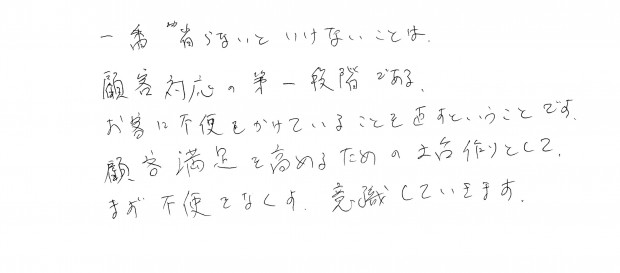 一番"省らないといけないことは、
顧客対応の第一段階である、
お客に不便をかけていることを直すということです。
顧客満足を高めるための土台作りとして、
まず不便をなくす、意識していきます。